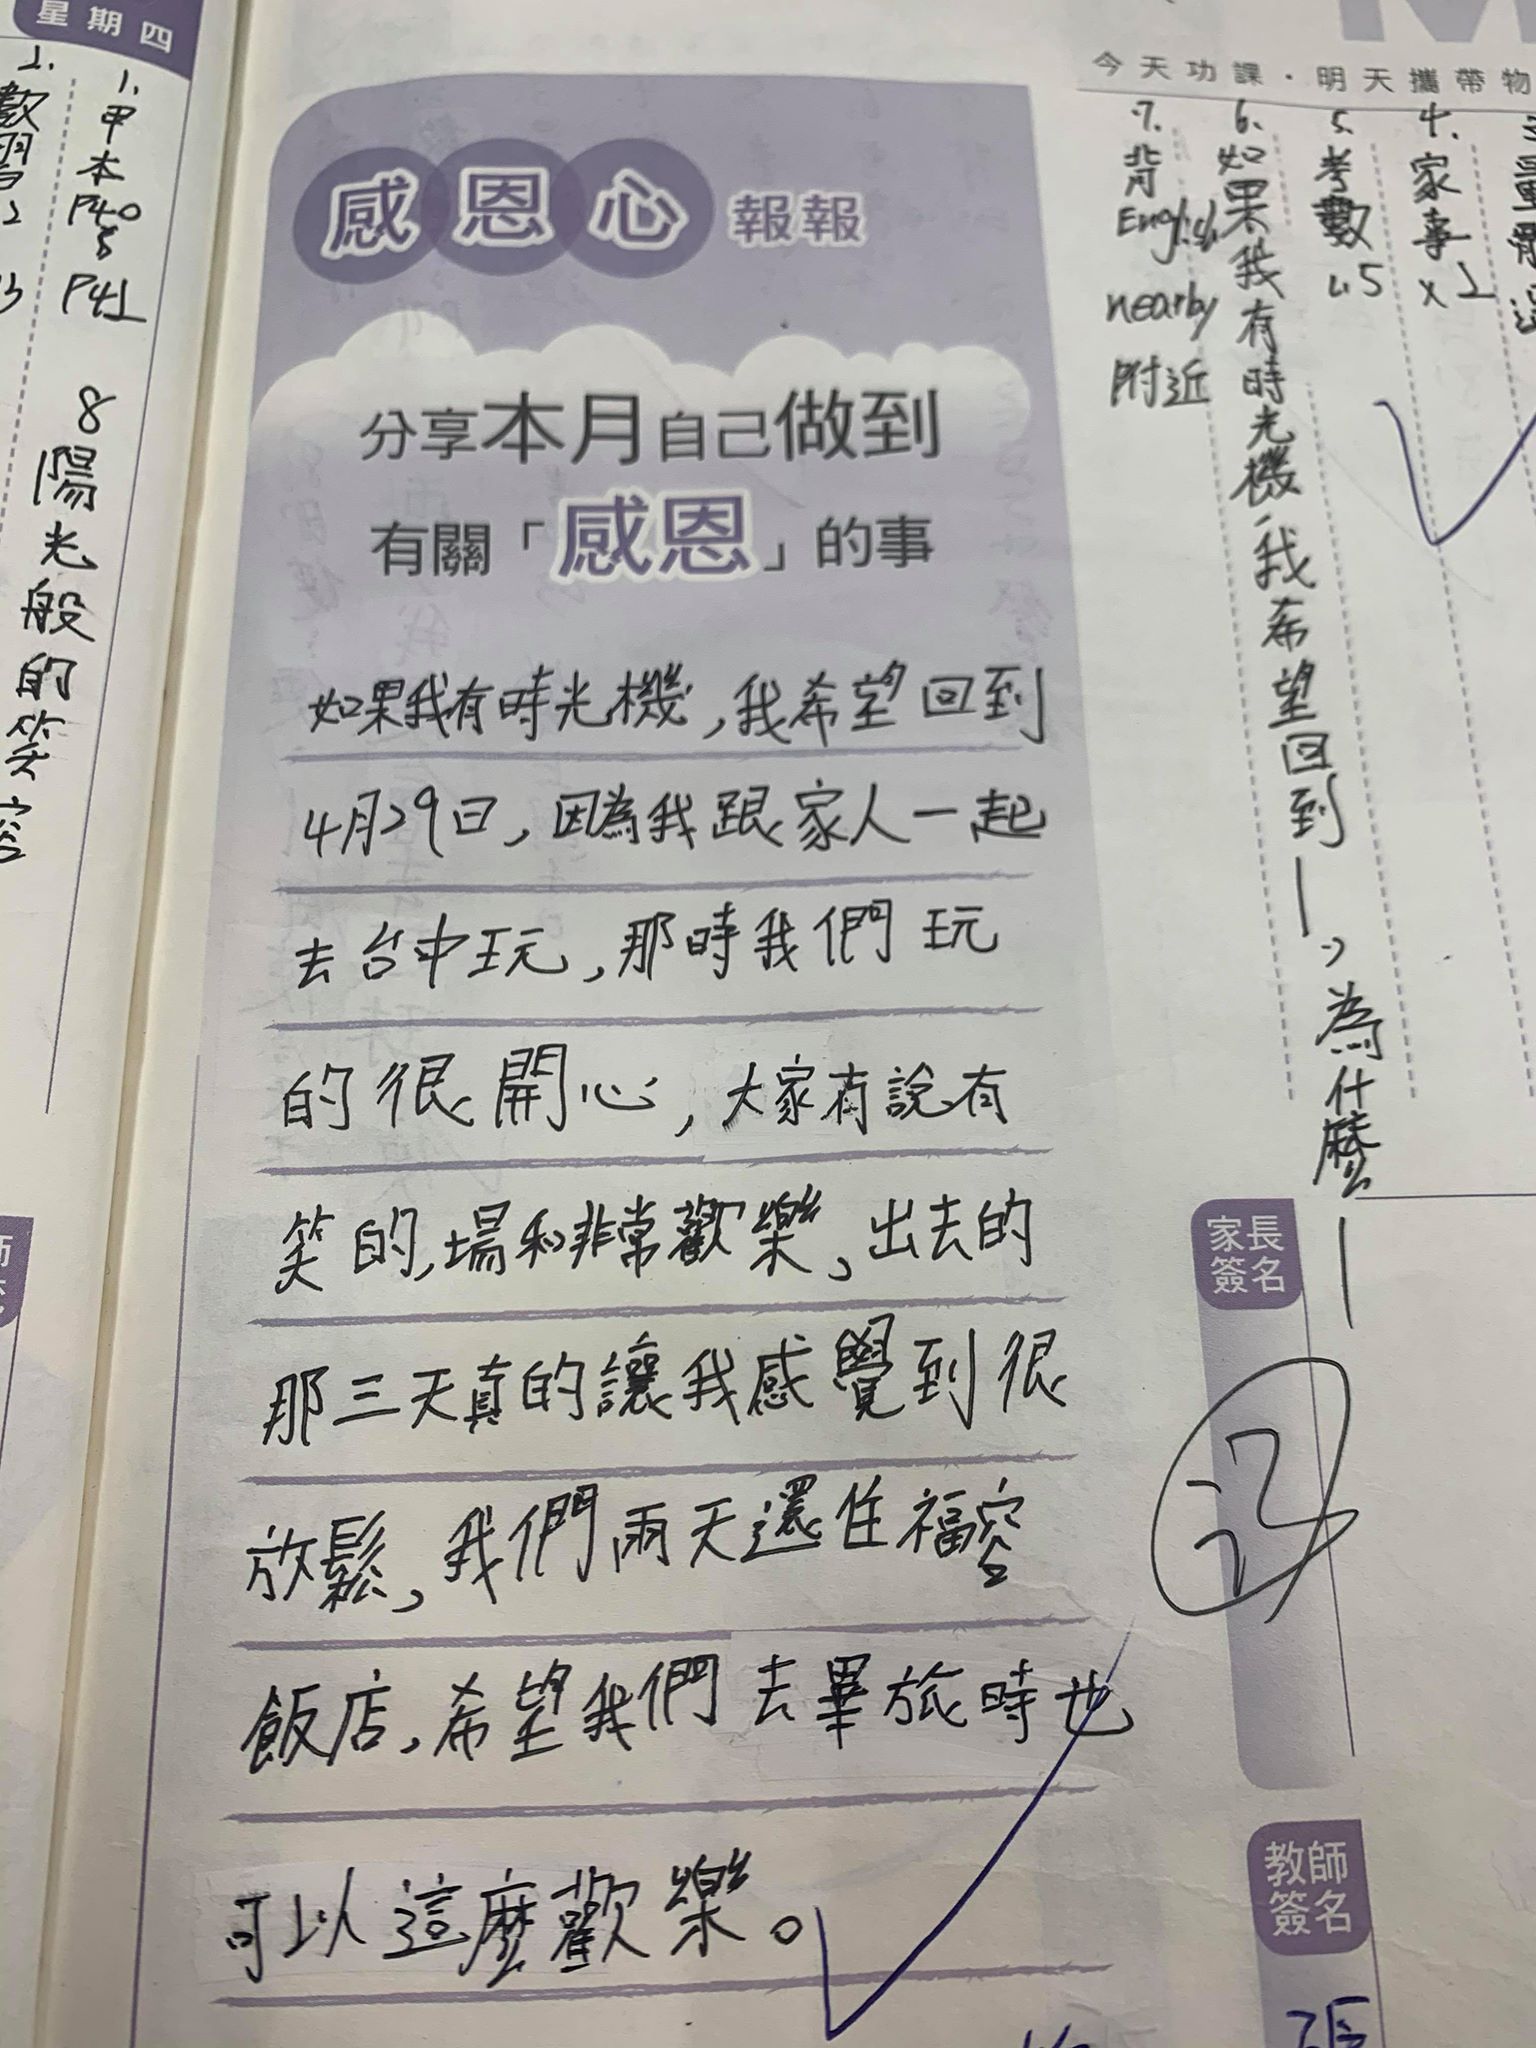 星期四
1.甲本P40&P41
2.數習
8陽光般的笑容
感恩心報報
分享本月自己做到
有關「感恩」的事
如果我有時光機,我希望回到
4月29日,因為我跟家人一起
去台中玩,那時我們玩
的很開心,大家有說有
笑的,場和非常歡樂,出去的
那三天真的讓我感覺到很
放鬆,我們兩天還住福容
飯店,希望我們去畢旅時也
可以這麼歡樂。
今天功課·明天攜帶物
4.家事x1
5.考數
6.如果我有時光機,我希望回到—,為什麼—
7.背English nearby附近
家長
簽名
教師
簽名
張